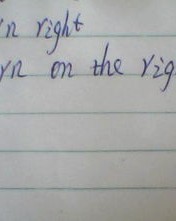 n right
rn on the rig